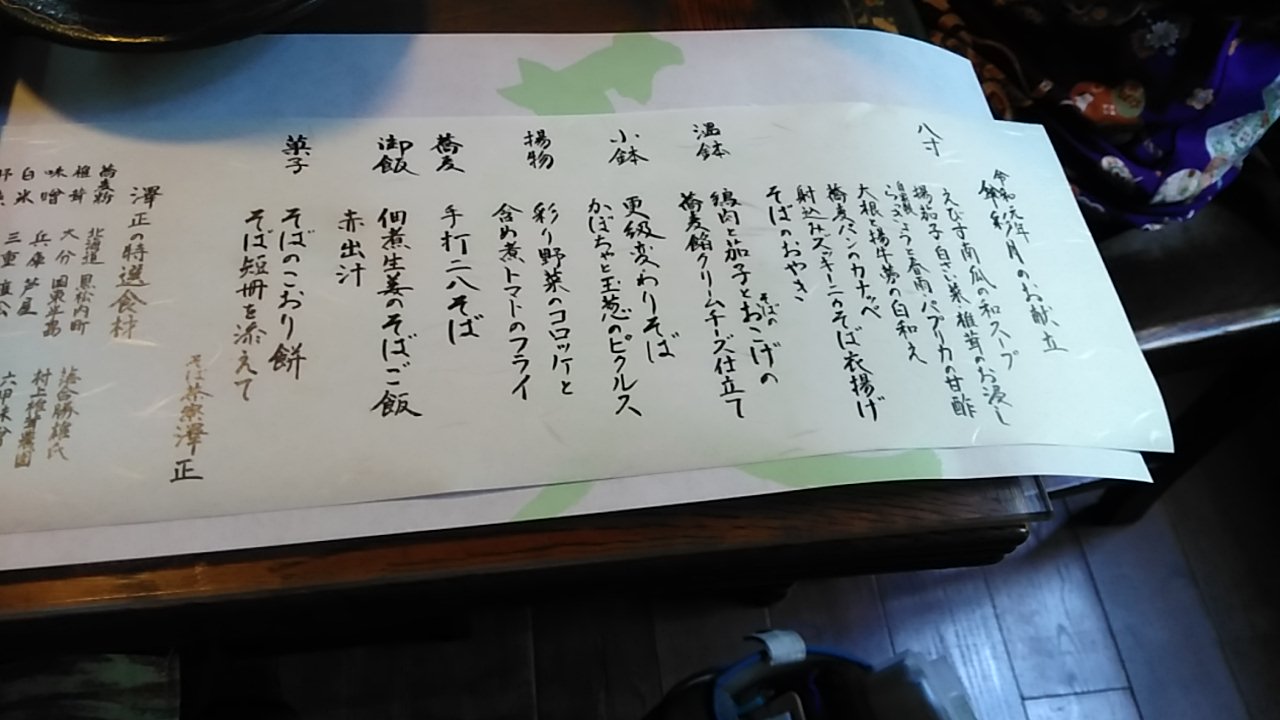 令和元年
月のお献立
八寸
えびす南瓜の和スープ
揚茄子白さい菜椎茸のお浸し
らっきょうと春雨パプリカの甘酢
大根と揚牛蒡の白和え
蕎麦パンのカナッペ
射込みズッキーニのそば衣揚げ
そばのおやき
温鉢
鶏肉と茄子とそばのおこげの
蕎麦餡クリームチーズ仕立て
小鉢
更級変わりそば
かぼちゃと玉葱のピクルス
揚物
彩り野菜のコロッケと
含め煮トマトのフライ
蕎麦
手打二八そば
御飯
佃煮生姜のそばご飯
赤出汁
菓子
そばのこおり餅
そば短冊を添えて
そば茶寮澤正
澤正の特選食材
蕎麦粉 北海道 黒松内町 落合勝雄氏
椎茸 大分 国東半島 村上椎茸農園
味噌 兵庫 芦屋 六甲味噌
白米 三重